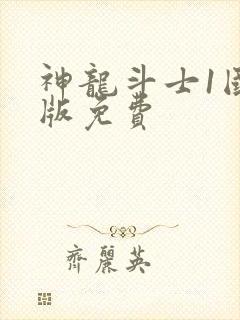 神龍斗士1国
版免費
齊麗英